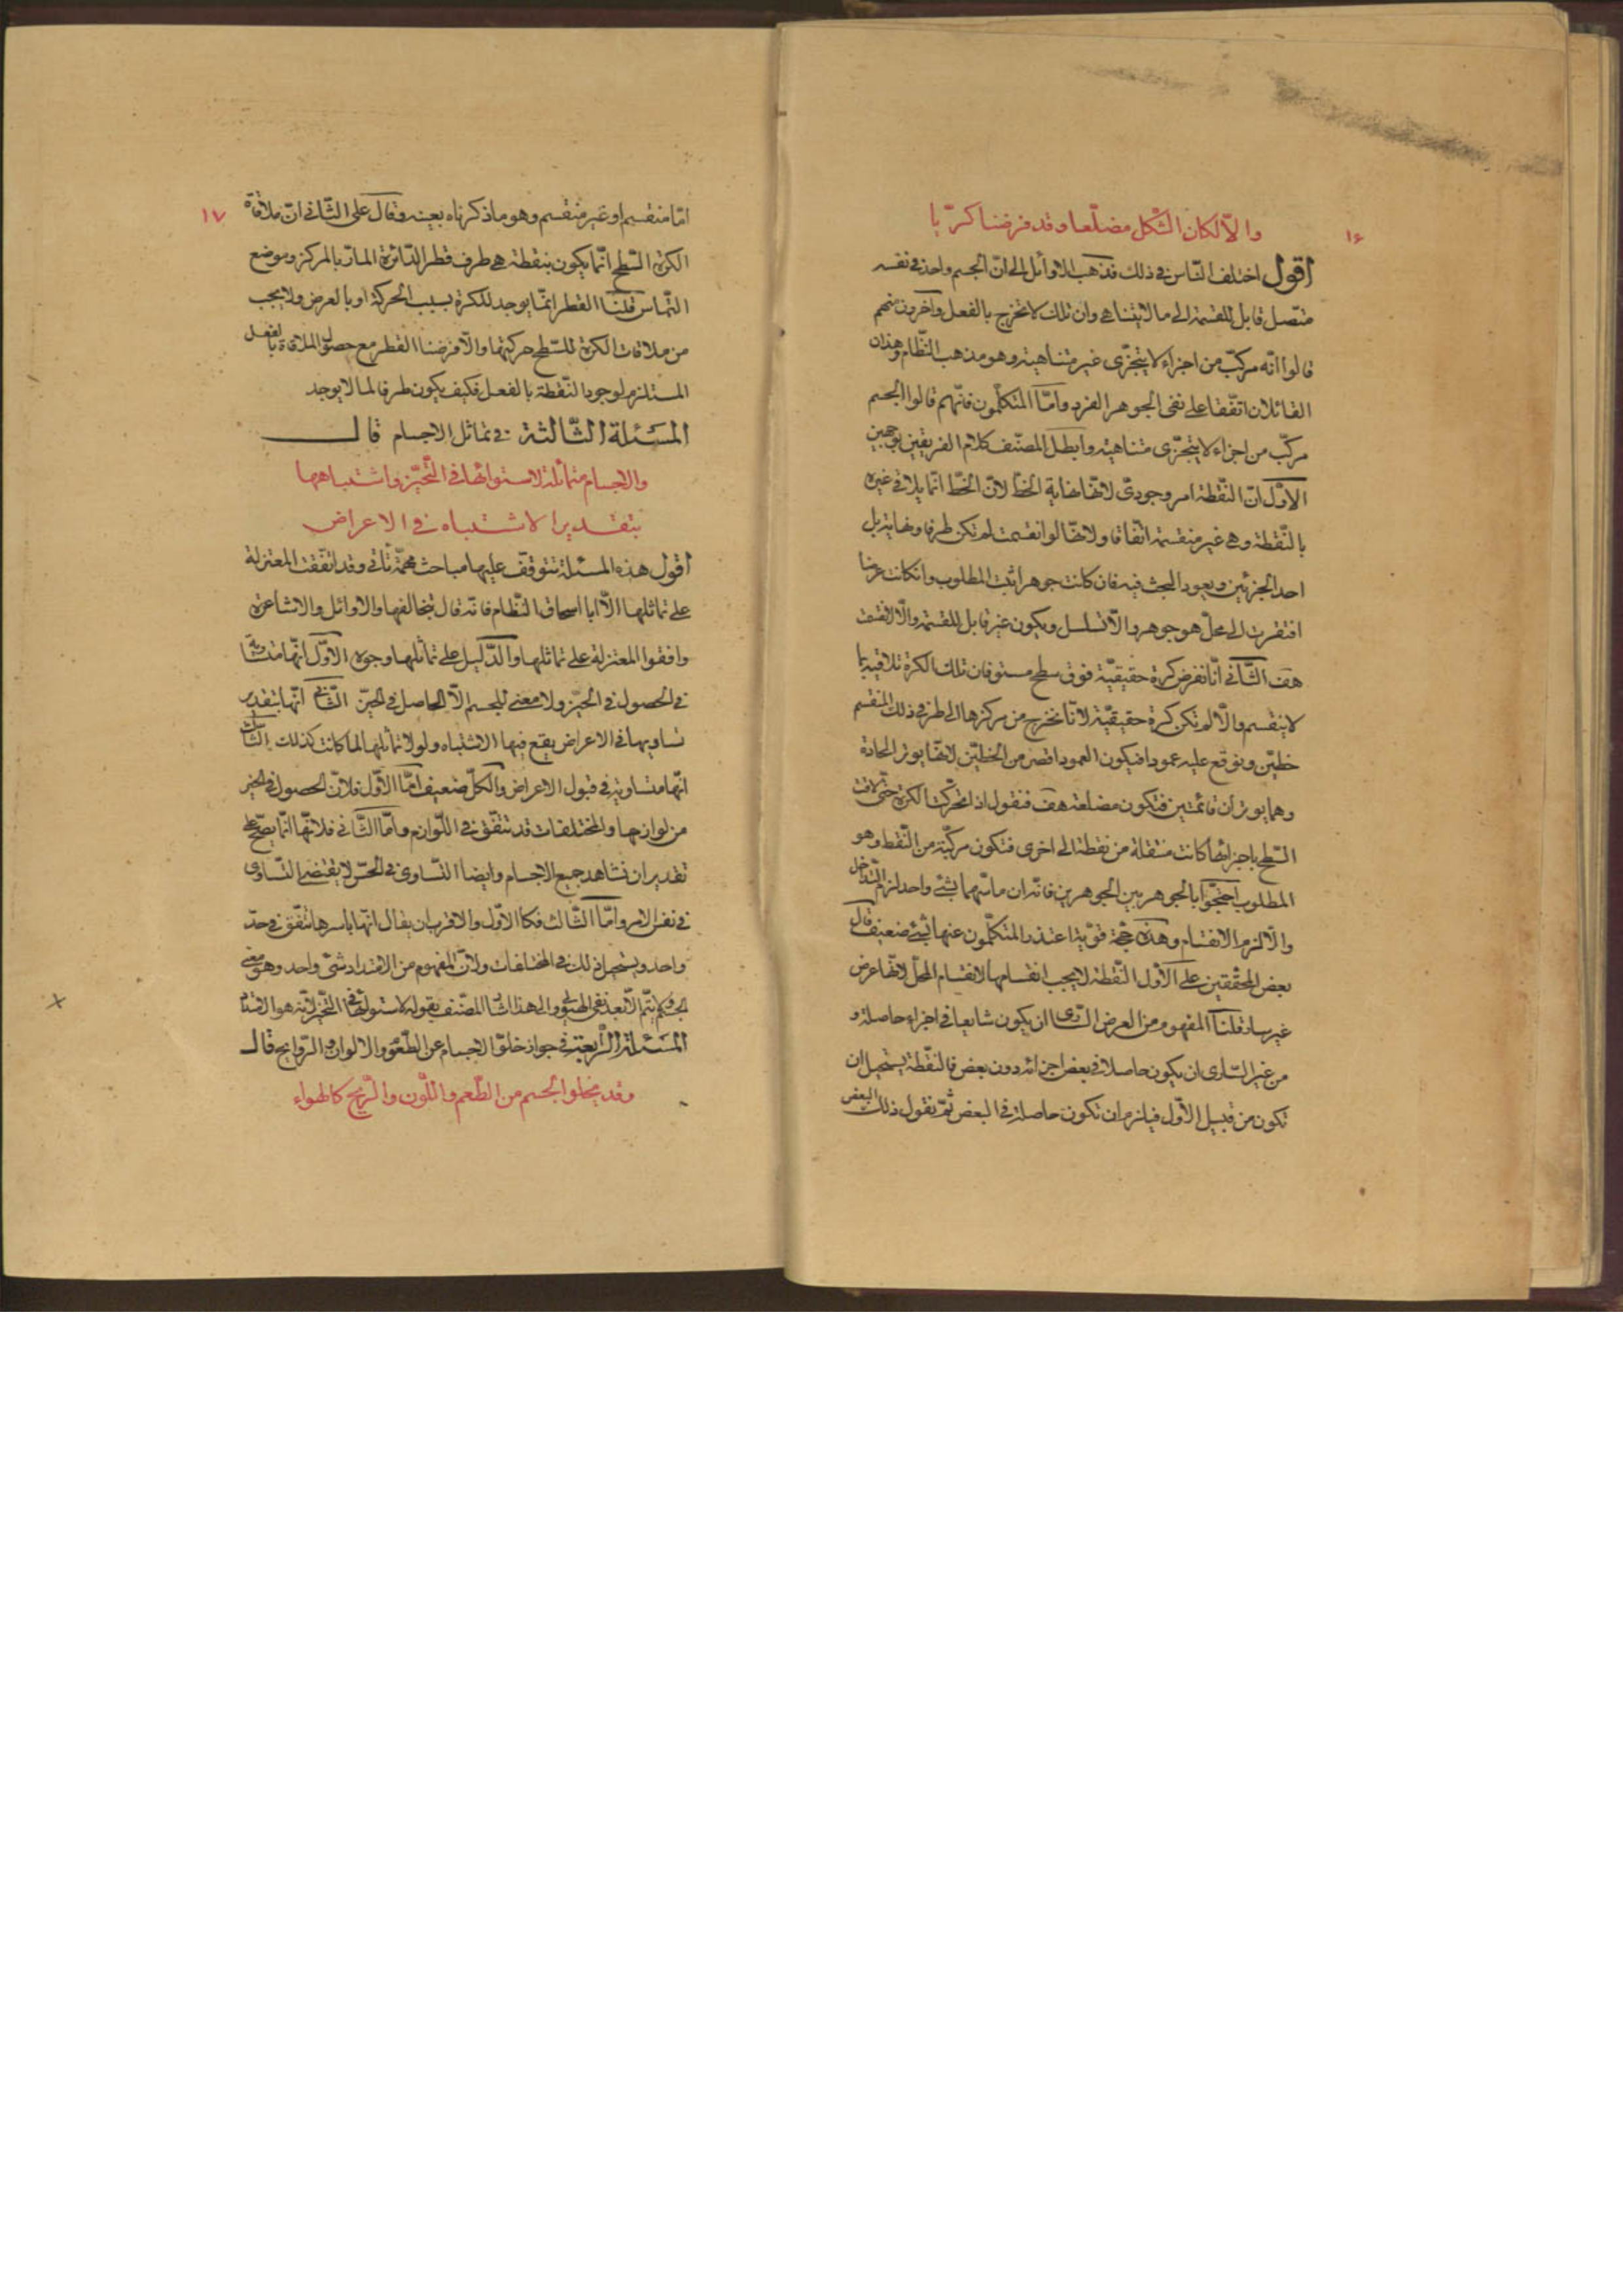 ١٦
والّا لكان الشكل مضلّعا وقد فرضنا كريّا
اقول اختلف النّاس فى ذلك فذهب الاوائل الى انّ الجسم واحد فى نفسه
متّصل قابل للقسمة الى ما لا يتناهى وان تلك لا تخرج بالفعل وآخرون منهم
قالوا انّه مركّب من اجزاء لا يتجزّى غير متناهية وهو مذهب النظّام وهذان
القائلان اتّفقا على نفى الجوهر الفرد وامّا المتكلّمون فانّهم قالوا الجسم
مركّب من اجزاء لا يتجزّى متناهية وابطل المصنّف كلام الفريقين بوجهين
الاوّل انّ النّقطة امر وجودىّ لانّها نهاية الخطّ لانّ الخطّ انّما يلاقى غيره
بالنّقطة وهى غير منقسمة اتّفاقا ولانّها لو انقسمت لم تكن طرفا ونهاية بل
احد الجزئين ويعود البحث فيه فان كانت جوهرا ثبت المطلوب وان كانت عرضا
افتقرت الى محلّ هو جوهر والّا تسلسل ويكون غير قابل للقسمة والّا انقسمت
هف الثّانى انّا نفرض كرة حقيقيّة فوق سطح مستو فان تلك الكرة تلاقيه بما
لا ينقسم والّا لم تكن كرة حقيقيّة لانّا نخرج من مركزها الى طرفى ذلك المنقسم
خطّين ونوقع عليه عمودا فيكون العمود اقصر من الخطّين لانّها يوتر الحادة
وهما يوتران قائمتين فتكون مضلعة هف فنقول اذا تحرّكت الكرة حتّى لاقت
السّطح باجزائها كانت منتقلة من نقطة الى اخرى فتكون مركّبة من النّقط وهو
المطلوب احتجّوا بالجوهر بين الجوهرين فانّه ان ماسّهما بشئ واحد لزم التّداخل
والّا لزم الانقسام وهذه حجّة قويّة اعتذر المتكلّمون عنها بشئ ضعيف قال
بعض المحقّقين على الاوّل النّقطة لا يجب انقسامها لانقسام المحلّ لانّها عرض
غير سار قلنا المفهوم من العرض السّارى ان يكون شايعا فى اجزاء حاصلة و
من غير السّارى ان يكون حاصلا فى بعض اجزائه دون بعض فالنّقطة يستحيل ان
تكون من قبيل الاوّل فيلزم ان تكون حاصلة فى البعض ثمّ نقول ذلك البعض
١٧
امّا منقسم او غير منقسم وهو ما ذكرناه بعينه وقال على الثّانى انّ ملاقاة
الكرة السّطح انّما يكون بنقطة هى طرف قطر الدّائرة المارّ بالمركز وموضع
التّماسّ قلنا القطر انّما يوجد للكرة بسبب الحركة او بالعرض ولا يجب
من ملاقات الكرة للسّطح حركتها والّا فرضنا القطر مع حصول الملاقاة بالفعل
المستلزم لوجود النّقطة بالفعل فكيف يكون طرفا لما لا يوجد
المسئلة الثّالثة فى تماثل الاجسام قال
والاجسام متماثلة لاستوائها فى التّحيّز واشتباهها
بتقدير الاشتباه فى الاعراض
اقول هذه المسئلة تتوقّف عليها مباحث مهمّة تأتى وقد اتّفقت المعتزلة
على تماثلها الّا ابا اسحاق النّظام فانّه قال بتخالفها والاوائل والاشاعرة
وافقوا المعتزلة على تماثلها والدّليل على تماثلها وجوه الاوّل انّها متساوية
فى الحصول فى الحيّز ولا معنى للجسم الّا الحاصل فى الحيّز الثّانى انّها بتقدير
تساويها فى الاعراض يقع فيها الاشتباه ولولا تماثلها لما كانت كذلك الثّالث
انّها متساوية فى قبول الاعراض والكلّ ضعيف امّا الاوّل فلانّ الحصول فى الحيّز
من لوازمها والمختلفات قد تتّفق فى اللّوازم وامّا الثّانى فلانّها انّما يصحّ على
تقدير ان نشاهد جميع الاجسام وايضا التّساوى فى الحسّ لا يقتضى التّساوى
فى نفس الامر وامّا الثّالث فكالاوّل والاقرب ان يقال انّها باسرها تتّفق فى حدّ
واحد ويستحيل ذلك فى المختلفات ولانّ المفهوم من الامتداد شئ واحد وهو معنى
الجسم ولم يتمّ الّا بعد نفى الهيولى والى هذا اشار المصنّف بقوله لاستوائها فى التّحيّز لانّه هو الامتداد
المسئلة الرّابعة فى جواز خلوّ الاجسام عن الطّعوم والالوان والرّوايح قال
وقد يخلو الجسم من الطّعم واللّون والرّيح كالهواء